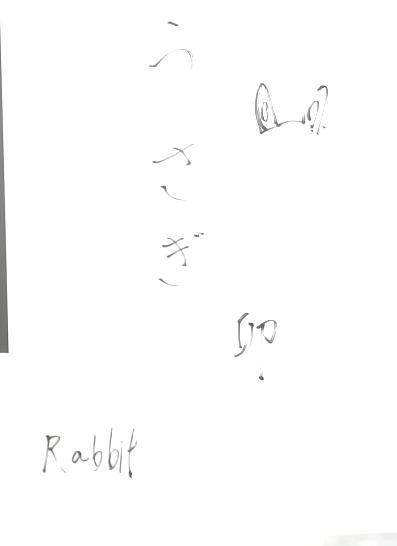 うさぎ
卯
Rabbit